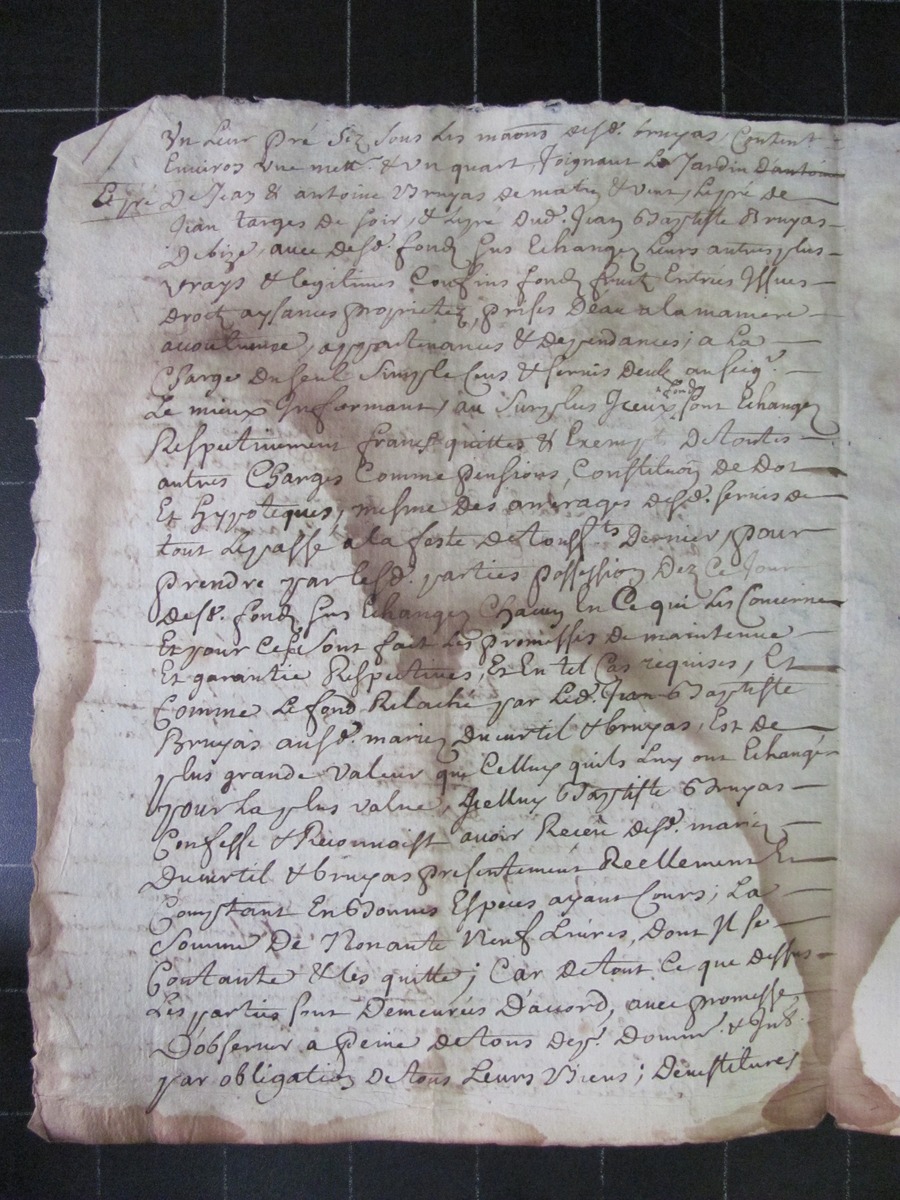 Un Leur pré Siz Sous Les maõns desd. bruyas, Content
Environ Une mett. & Un quart, Joignant Le Jardin d'antoine
Et pré De Jean & antoine Bruyas de matin & vent, Le pré de
Jean targes de soir, & Le pre dud. Jean Baptiste Bruyas
De bize, avec desd. fondz sus Echangez Leurs autres plus
vrays & legitimes Confins fondz fruitz Entrées Issues
Droctz aysances proprietez, prises Deau a la maniere
acoutumée, appartenances & dependances; a La
Charge Du seul Simple Cens & servis Deub au seigr.
Le mieux Informant, au Surplus Iceux fondz sont Echangez
Respectivement francs quittes & Exempt De toutes
autres Charges Comme pensions, Constituõn De Dot
Et hypoteques, mesme des arrerages desd. servis de
tout Le passé a la feste de Toussts Dernier, pour
prendre par lesd. parties possession Dez Ce Jour
desd. fondz sus Echangez Chacun En Ce qui Les Concerne
Et pour Ce se sont fait Les promesses de maintenue
Et garantie Respectives, Et En tel Cas requises, Et
Comme Le fond Relaché par Led. Jean Baptiste
Bruyas ausd. mariez Ducurtil & bruyas, Est de
plus grande valeur que Celluy quils Luy ont Echangé
pour La plus value, Icelluy Baptiste Bruyas
Confesse & Reconnoist avoir Receu desd. mariez
Ducurtil & bruyas presentement Reellement Et
Comptant En Bonnes Especes ayant Cours; La
Somme De Nonante Neuf Livres, Dont Il se
Contante & les quitte; Car de tout Ce que dessus
Les parties sont Demeurées D'accord, avec promesse
D'observer a peine de tous dep. Domm. & Int.
par obligation de tous Leurs Biens; Devestitures